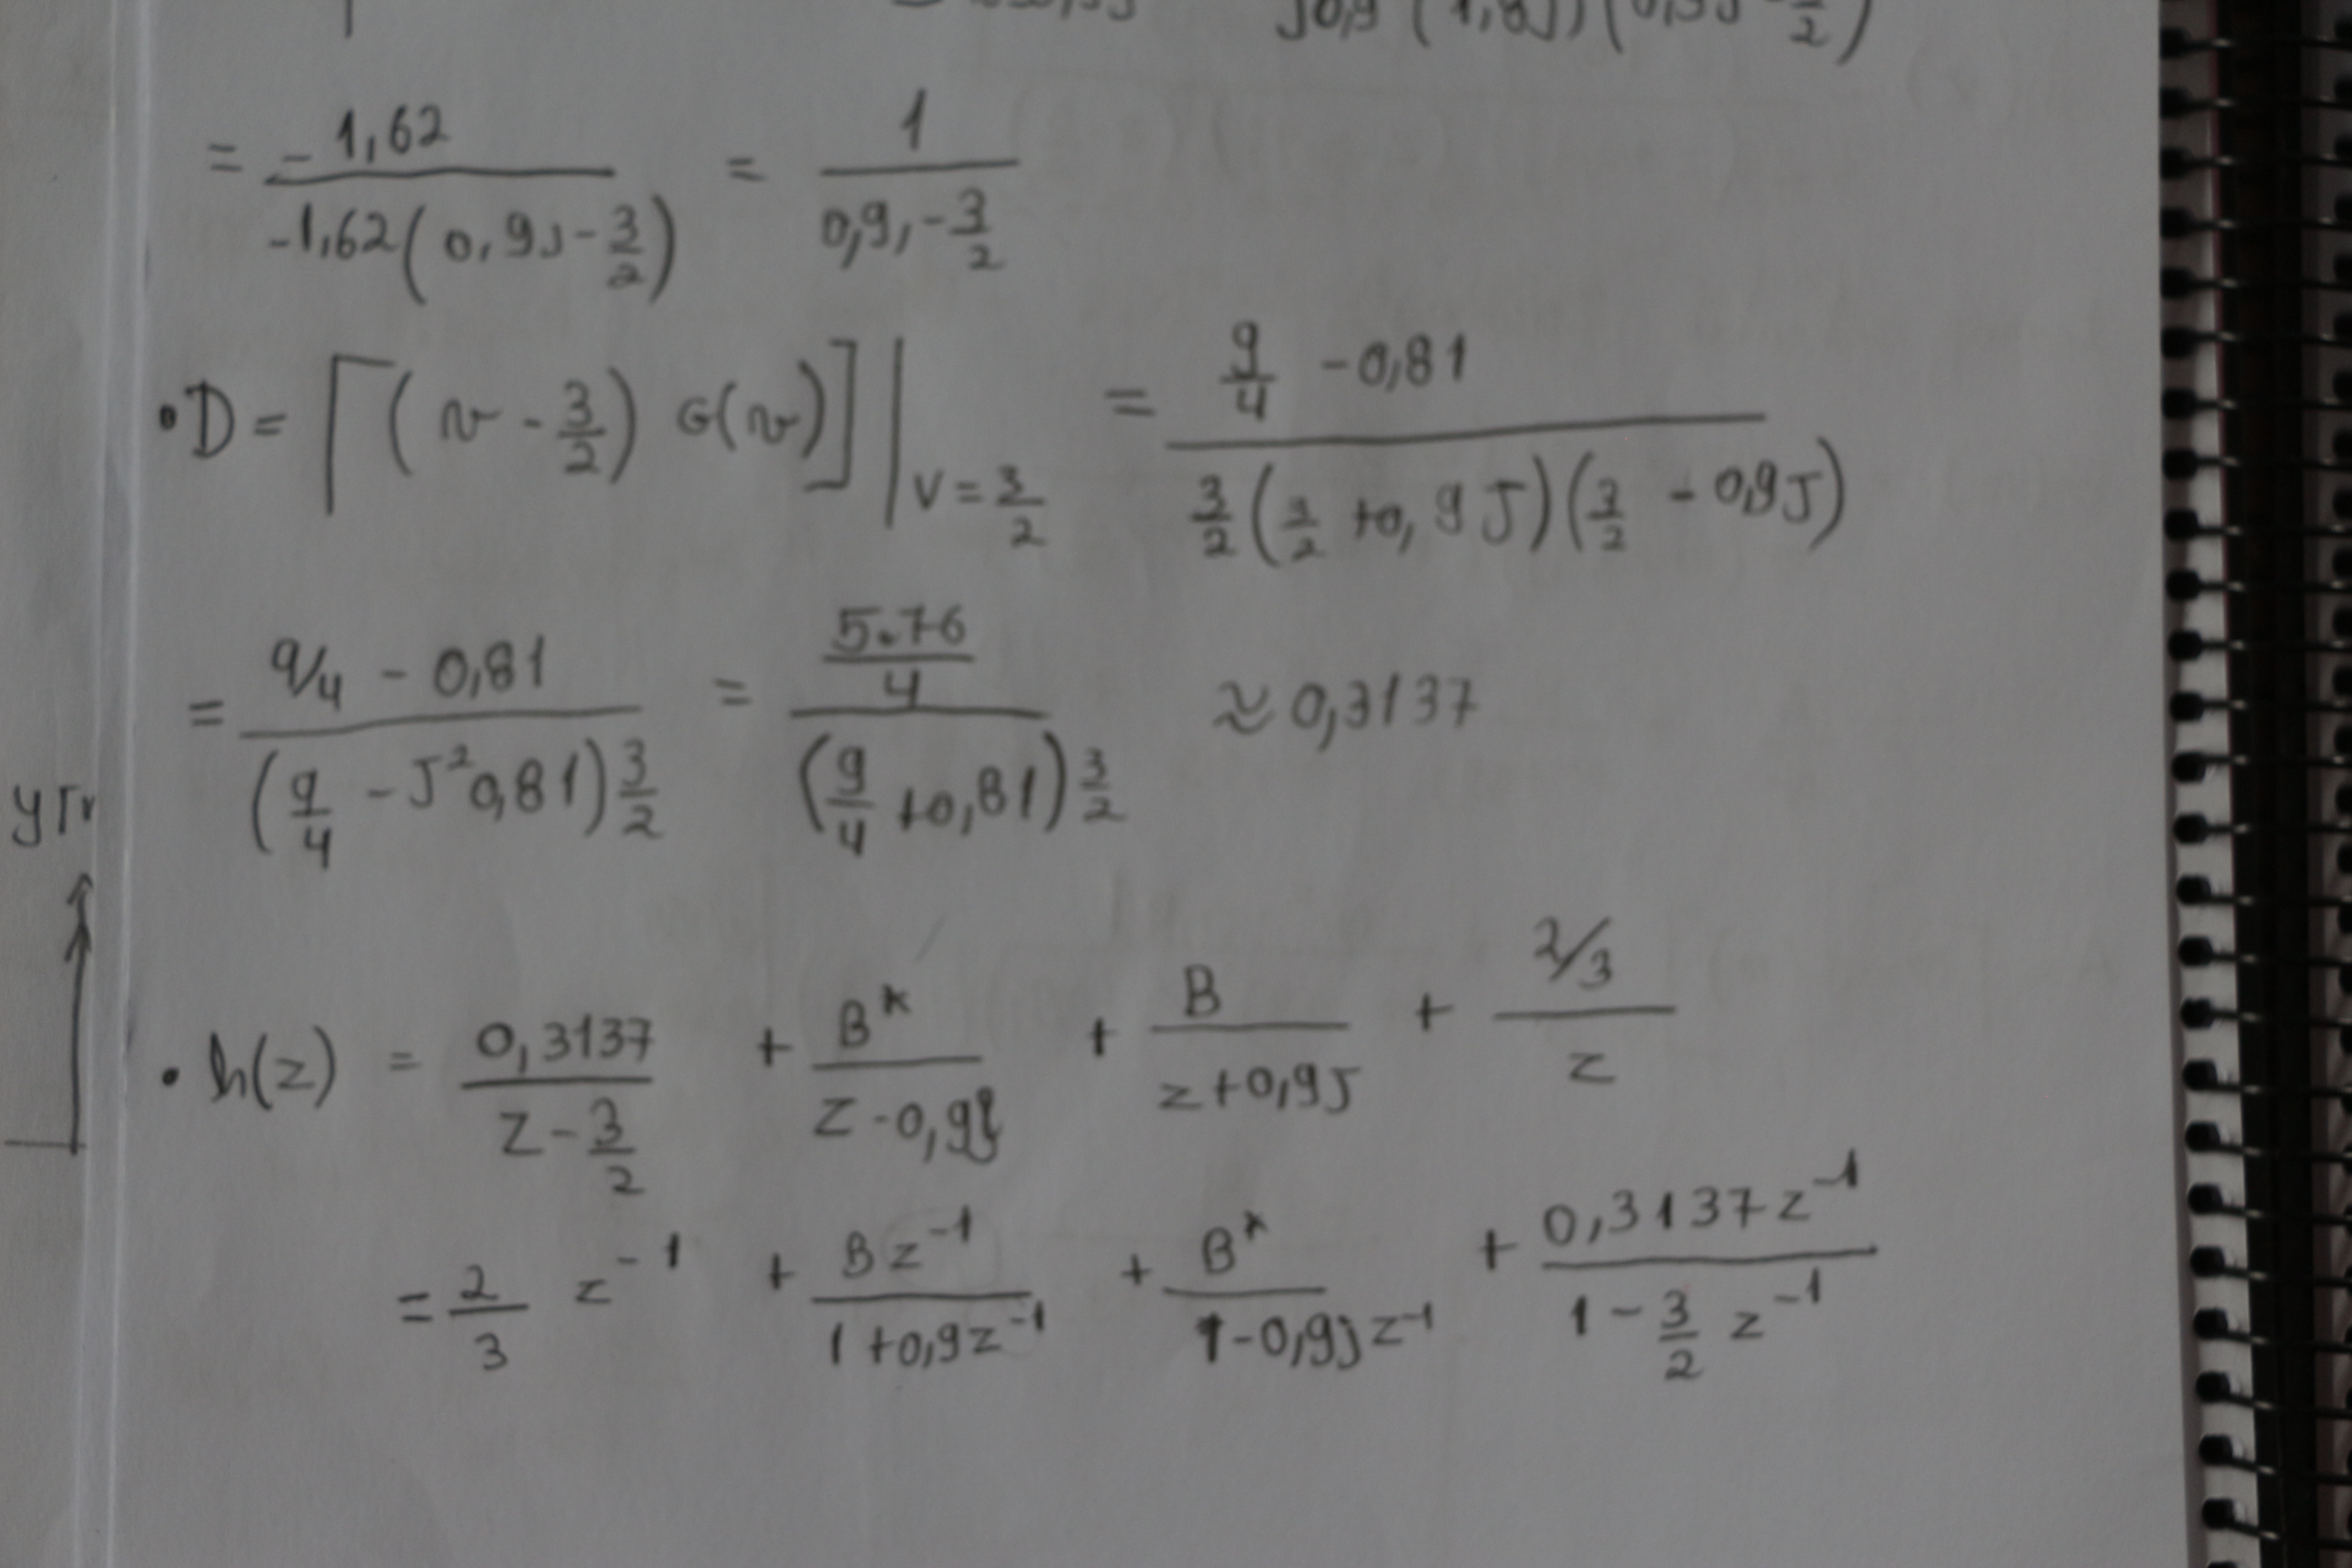 j0,9 (1,8j)
= -1,62 / -1,62(0,9J - 3/2) = 1 / 0,9, - 3/2
• D = [(v - 3/2) G(v)] | V = 3/2 = 9/4 - 0,81 / 3/2 (3/2 + 0,9J)(3/2 - 0,9J)
= 9/4 - 0,81 / (9/4 - J² 0,81) 3/2 = 5.76/4 / (9/4 + 0,81) 3/2 ≈ 0,3137
• h(z) = 0,3137 / z - 3/2 + B* / z - 0,9j + B / z + 0,9J + 2/3 / z
= 2/3 z⁻¹ + B z⁻¹ / 1 + 0,9 z⁻¹ + B* / 1 - 0,9j z⁻¹ + 0,3137 z⁻¹ / 1 - 3/2 z⁻¹